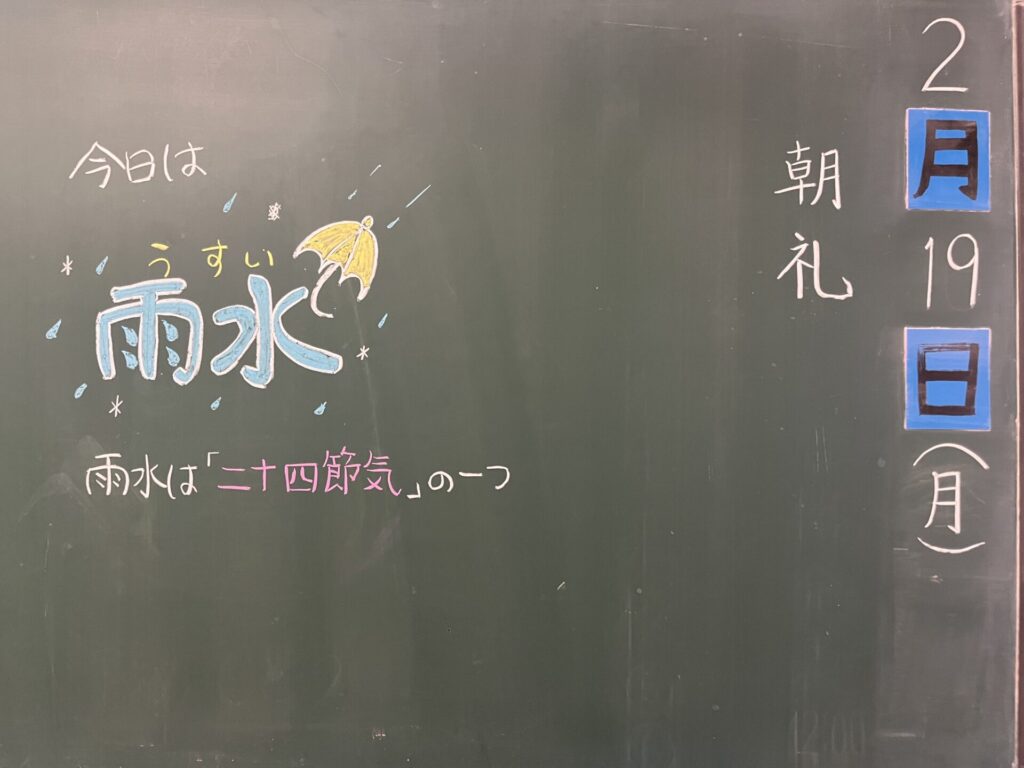 2月19日(月)
朝礼
今日は
うすい
雨水
雨水は「二十四節気」の一つ